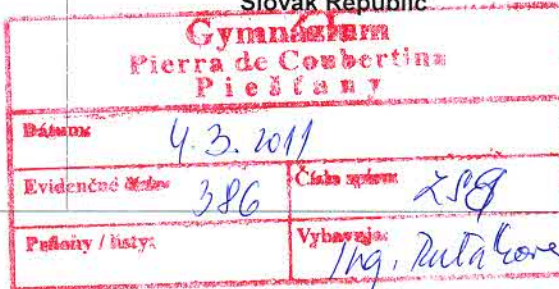 Slovak Republic
Gymnázium
Pierra de Coubertina
Piešťany
Dátum: 4.3.2011
Evidenčné číslo: 386
Číslo spisu:
Prílohy / listy:
Vybavuje: Ing.